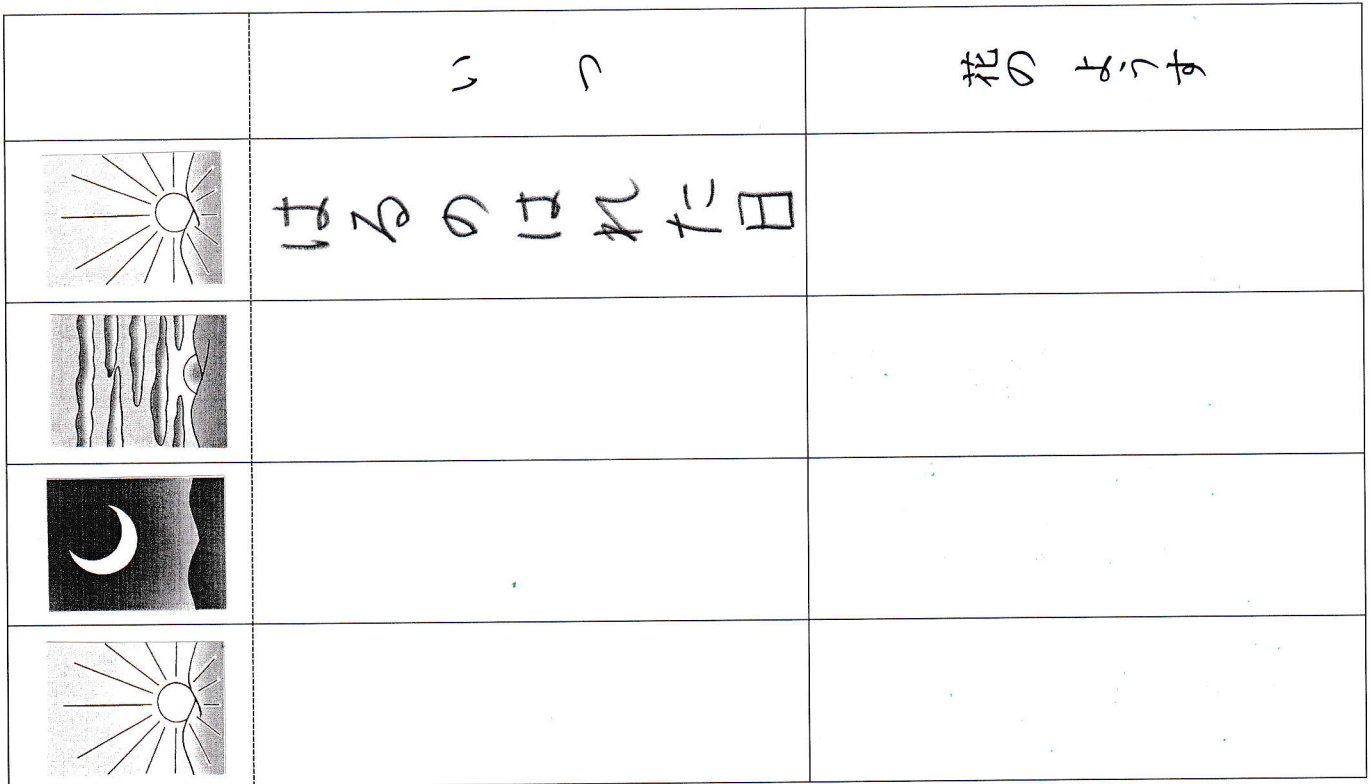 いつ
花のようす
はるのはれた日